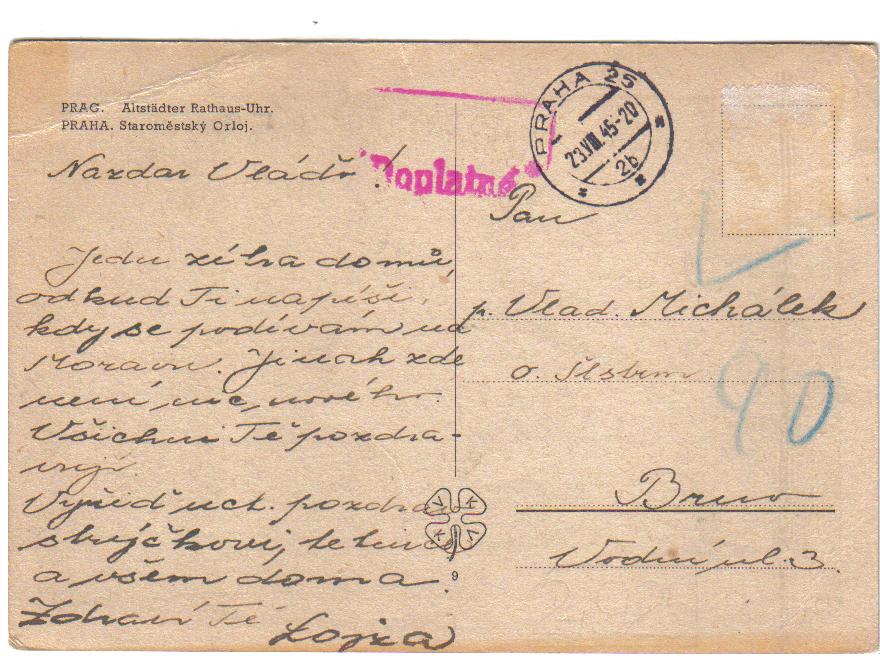 PRAG. Altstädter Rathaus-Uhr.
PRAHA. Staroměstský Orloj.
Nazdar Vláďo!
Jedu zítra domů,
odkud Ti napíši,
kdy se podívám na
Moravu. Jinak zde
není nic nového.
Všichni Tě pozdra-
vují.
Vyřiď uct. pozdrav
strýčkovi, tetince
a všem doma.
Zdraví Tě
Lojza
Doplatné
PRAHA 25
23.VIII.45-20
2b
Pan
p. Vlad. Michálek
Brno
Vodní ul. 3.
90
V K V K
9